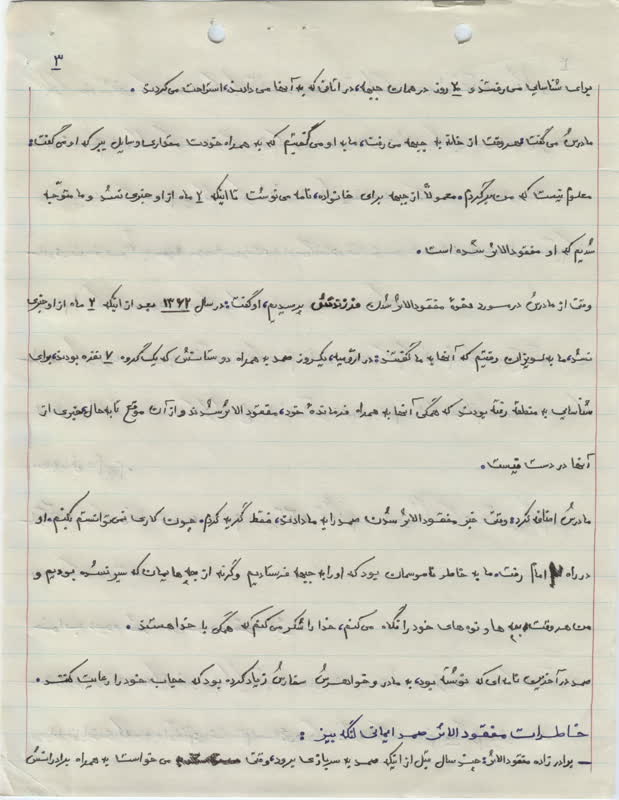 ۳
برای شناسایی می‌رفتند و ۲۰ روز در همان جبهه، در اتاقی که به آنها می‌دادند، استراحت می‌کردند.
مادرش می‌گفت: هر وقت از خانه به جبهه می‌رفت، ما به او می‌گفتیم که به همراه خودت مقداری وسایل ببر که او می‌گفت:
معلوم نیست که من برگردم. معمولاً از جبهه برای خانواده، نامه می‌نوشت تا اینکه ۲ ماه از او خبری نشد و ما متوجّه
شدیم که او مفقودالاثر شده است.
وقتی از مادرش در مورد نحوهٔ مفقودالاثر شدن فرزندش پرسیدیم، او گفت: در سال ۱۳۶۲ بعد از اینکه ۲ ماه از او خبری
نشد، ما به رفتیم که آنها به ما گفتند: در ارومیه، یک روز صمد به همراه دوستانش که یک گروه ۷ نفره بودند، برای
شناسایی به منطقه رفته بودند که همگی آنها به همراه فرماندهٔ خود، مفقودالاثر شدند و از آن موقع تا به حال، خبری از
آنها در دست نیست.
مادرش اضافه کرد: وقتی خبر مفقودالاثر شدن صمد را به ما دادند، فقط گریه کردم. چون کاری نمی‌توانستم بکنم. او
در راه امام رفت. ما به خاطر ناموسمان بود که او را به جبهه فرستادیم وگرنه از بچه‌هایمان که سیر نشده بودیم و
من هر وقت، بچه‌ها و نوه‌های خود را نگاه می‌کنم، خدا را شکر می‌کنم که همگی با خدا هستند.
صمد در آخرین نامه‌ای که نوشته بود، به مادر و خواهرش سفارش زیاد کرده بود که حجاب خود را رعایت کنند.
خاطرات مفقودالاثر صمد ایمانی :
_ برادرزاده مفقودالاثر: چند سال قبل از اینکه صمد به سربازی برود، وقتی می‌خواست به همراه برادرانش